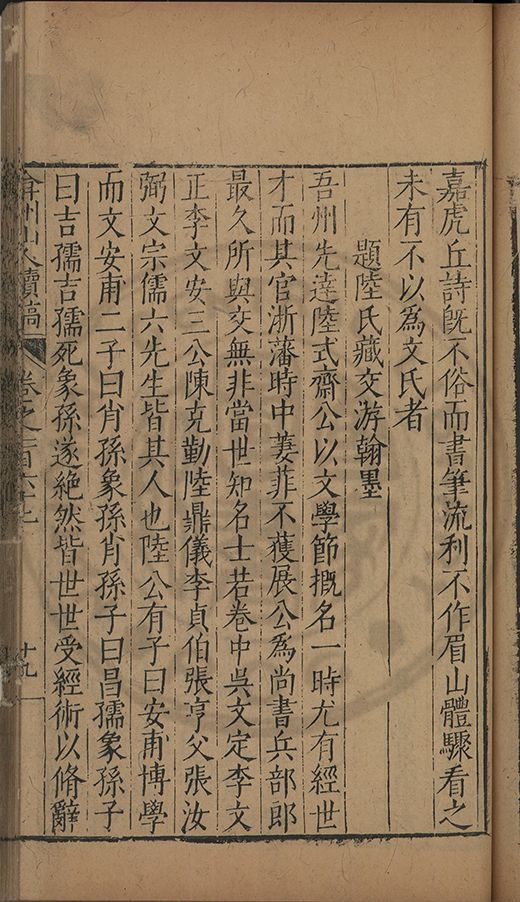 嘉虎丘詩旣不俗而書筆流利不作眉山體驟看之
未有不以為文氏者
題陸氏藏交游翰墨
吾州先達陸式齋公以文學節槩名一時尤有經世
才而其官浙藩時中萋菲不獲展公為尚書兵部郎
最久所與交無非當世知名士若卷中吳文定李文
正李文安三公陳克勤陸鼎儀李貞伯張亨父張汝
弼文宗儒六先生皆其人也陸公有子曰安甫博學
而文安甫二子曰肖孫象孫肖孫子曰昌孺象孫子
曰吉孺吉孺死象孫遂絶然皆世世受經術以脩辭
弇州山人續稿
卷之一百六十二
十九